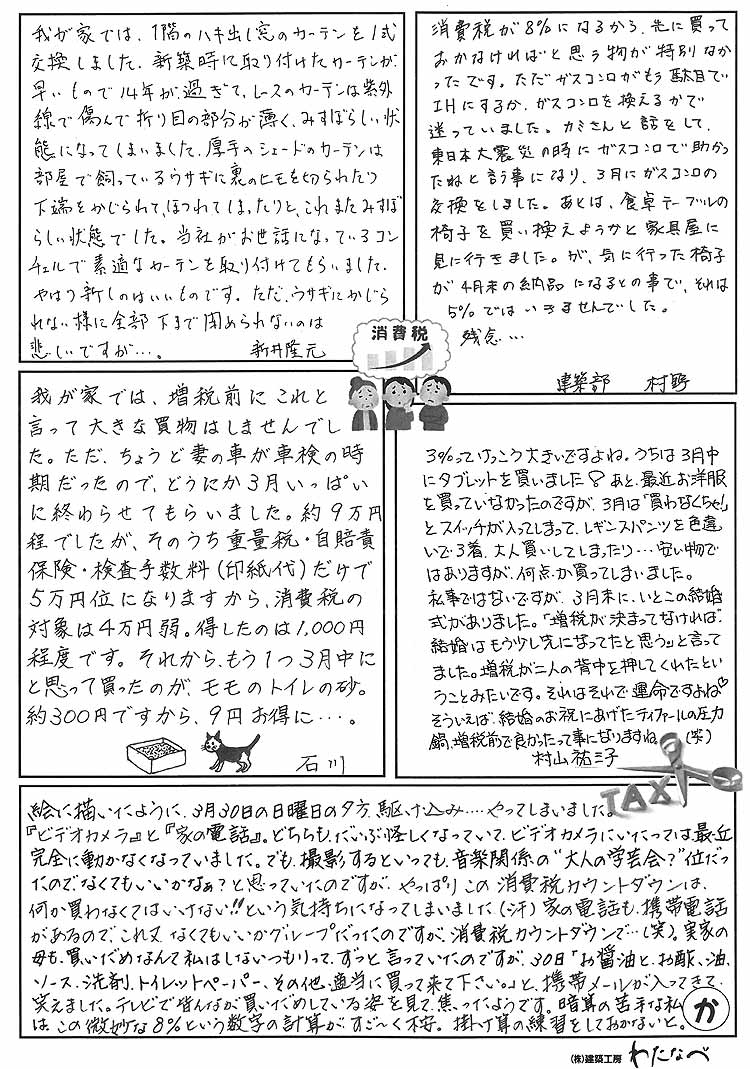 我が家では、1階のハキ出し窓のカーテンを1式
交換しました。新築時に取り付けたカーテンが、
早いもので14年が過ぎて、レースのカーテンは紫外
線で傷んで折り目の部分が薄く、みすぼらしい状
態になってしまいました。厚手のシェードのカーテンは
部屋で飼っているウサギに裏のヒモを切られたり
下端をかじられて、ほつれてしまったりと、これまたみすぼ
らしい状態でした。当社がお世話になっているコン
チェルで素適なカーテンを取り付けてもらいました。
やはり新しのはいいものです。ただ、ウサギにかじら
れない様に全部下まで閉められないのは
悲しいですが…。 新井隆元
消費税が8%になるから、先に買って
おかなければと思う物が特別なか
ったです。ただガスコンロがもう駄目で
IHにするか、ガスコンロを換えるかで
迷っていました。カミさんと話をして、
東日本大震災の時にガスコンロで助かっ
たねと言う事になり、3月にガスコンロの
交換をしました。あとは、食卓テーブルの
椅子を買い換えようかと家具屋に
見に行きました。が、気に行った椅子
が4月末の納品になるとの事で、それは
5%ではいきませんでした。
残念…
建築部 村野
消費税
我が家では、増税前にこれと
言って大きな買物はしませんでし
た。ただ、ちょうど妻の車が車検の時
期だったので、どうにか3月いっぱい
に終わらせてもらいました。約9万円
程でしたが、そのうち重量税・自賠責
保険・検査手数料(印紙代)だけで
5万円位になりますから、消費税の
対象は4万円弱。得したのは1,000円
程度です。それから、もう1つ3月中に
と思って買ったのが、モモのトイレの砂。
約300円ですから、9円お得に…。
石川
3%ってけっこう大きいですよね。うちは3月中
にタブレットを買いました♡あと、最近お洋服
を買っていなかったのですが、3月は「買わなくちゃ!」
とスイッチが入ってしまって、レギンスパンツを色違
いで3着、大人買いしてしまったり…安い物で
はありますが、何点か買ってしまいました。
私事ではないですが、3月末に、いとこの結婚
式がありました。「増税が決まってなければ
結婚はもう少し先になってたと思う」と言って
ました。増税が二人の背中を押してくれたとい
うことみたいです。それはそれで運命ですよね♡
そういえば、結婚のお祝にあげたティファールの圧力
鍋、増税前で良かったって事になりますね。(笑)
村山祐三子
TAX
絵に描いたように、3月30日の日曜日の夕方、駆け込み…やってしまいました。
『ビデオカメラ』と『家の電話』。どちらも、だいぶ怪しくなっていて、ビデオカメラにいたっては最近
完全に動かなくなっていました。でも、撮影するといっても、音楽関係の“大人の学芸会?”位だっ
たのでなくてもいいかなぁ?と思っていたのですが、やっぱりこの消費税カウントダウンは、
何か買わなくてはいけない!!という気持ちになってしまいました(汗)家の電話も、携帯電話
があるので、これ又なくてもいいかグループだったのですが、消費税カウントダウンで…(笑)。実家の
母も、買いだめなんて私はしないつもりって、ずっと言っていたのですが、30日「お醤油と、お酢、油、
ソース、洗剤、トイレットペーパー、その他、適当に買って来て下さい。」と、携帯メールが入ってきて、
笑えました。テレビで皆んなが買いだめしている姿を見て、焦ったようです。暗算の苦手な私
は、この微妙な8%という数字の計算が、すご~く不安。掛け算の練習をしておかないと。
か
(株)建築工房 わたなべ